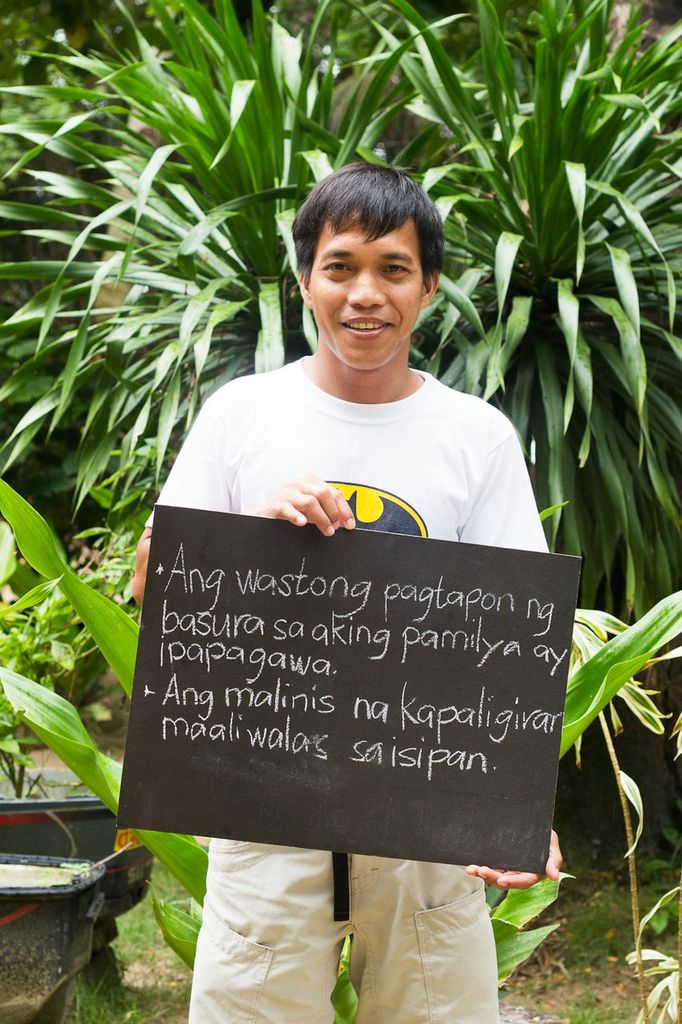 * Ang wastong pagtapon ng
basura sa aking pamilya ay
Ipapagawa.
* Ang malinis na kapaligiran
maaliwalas sa isipan.